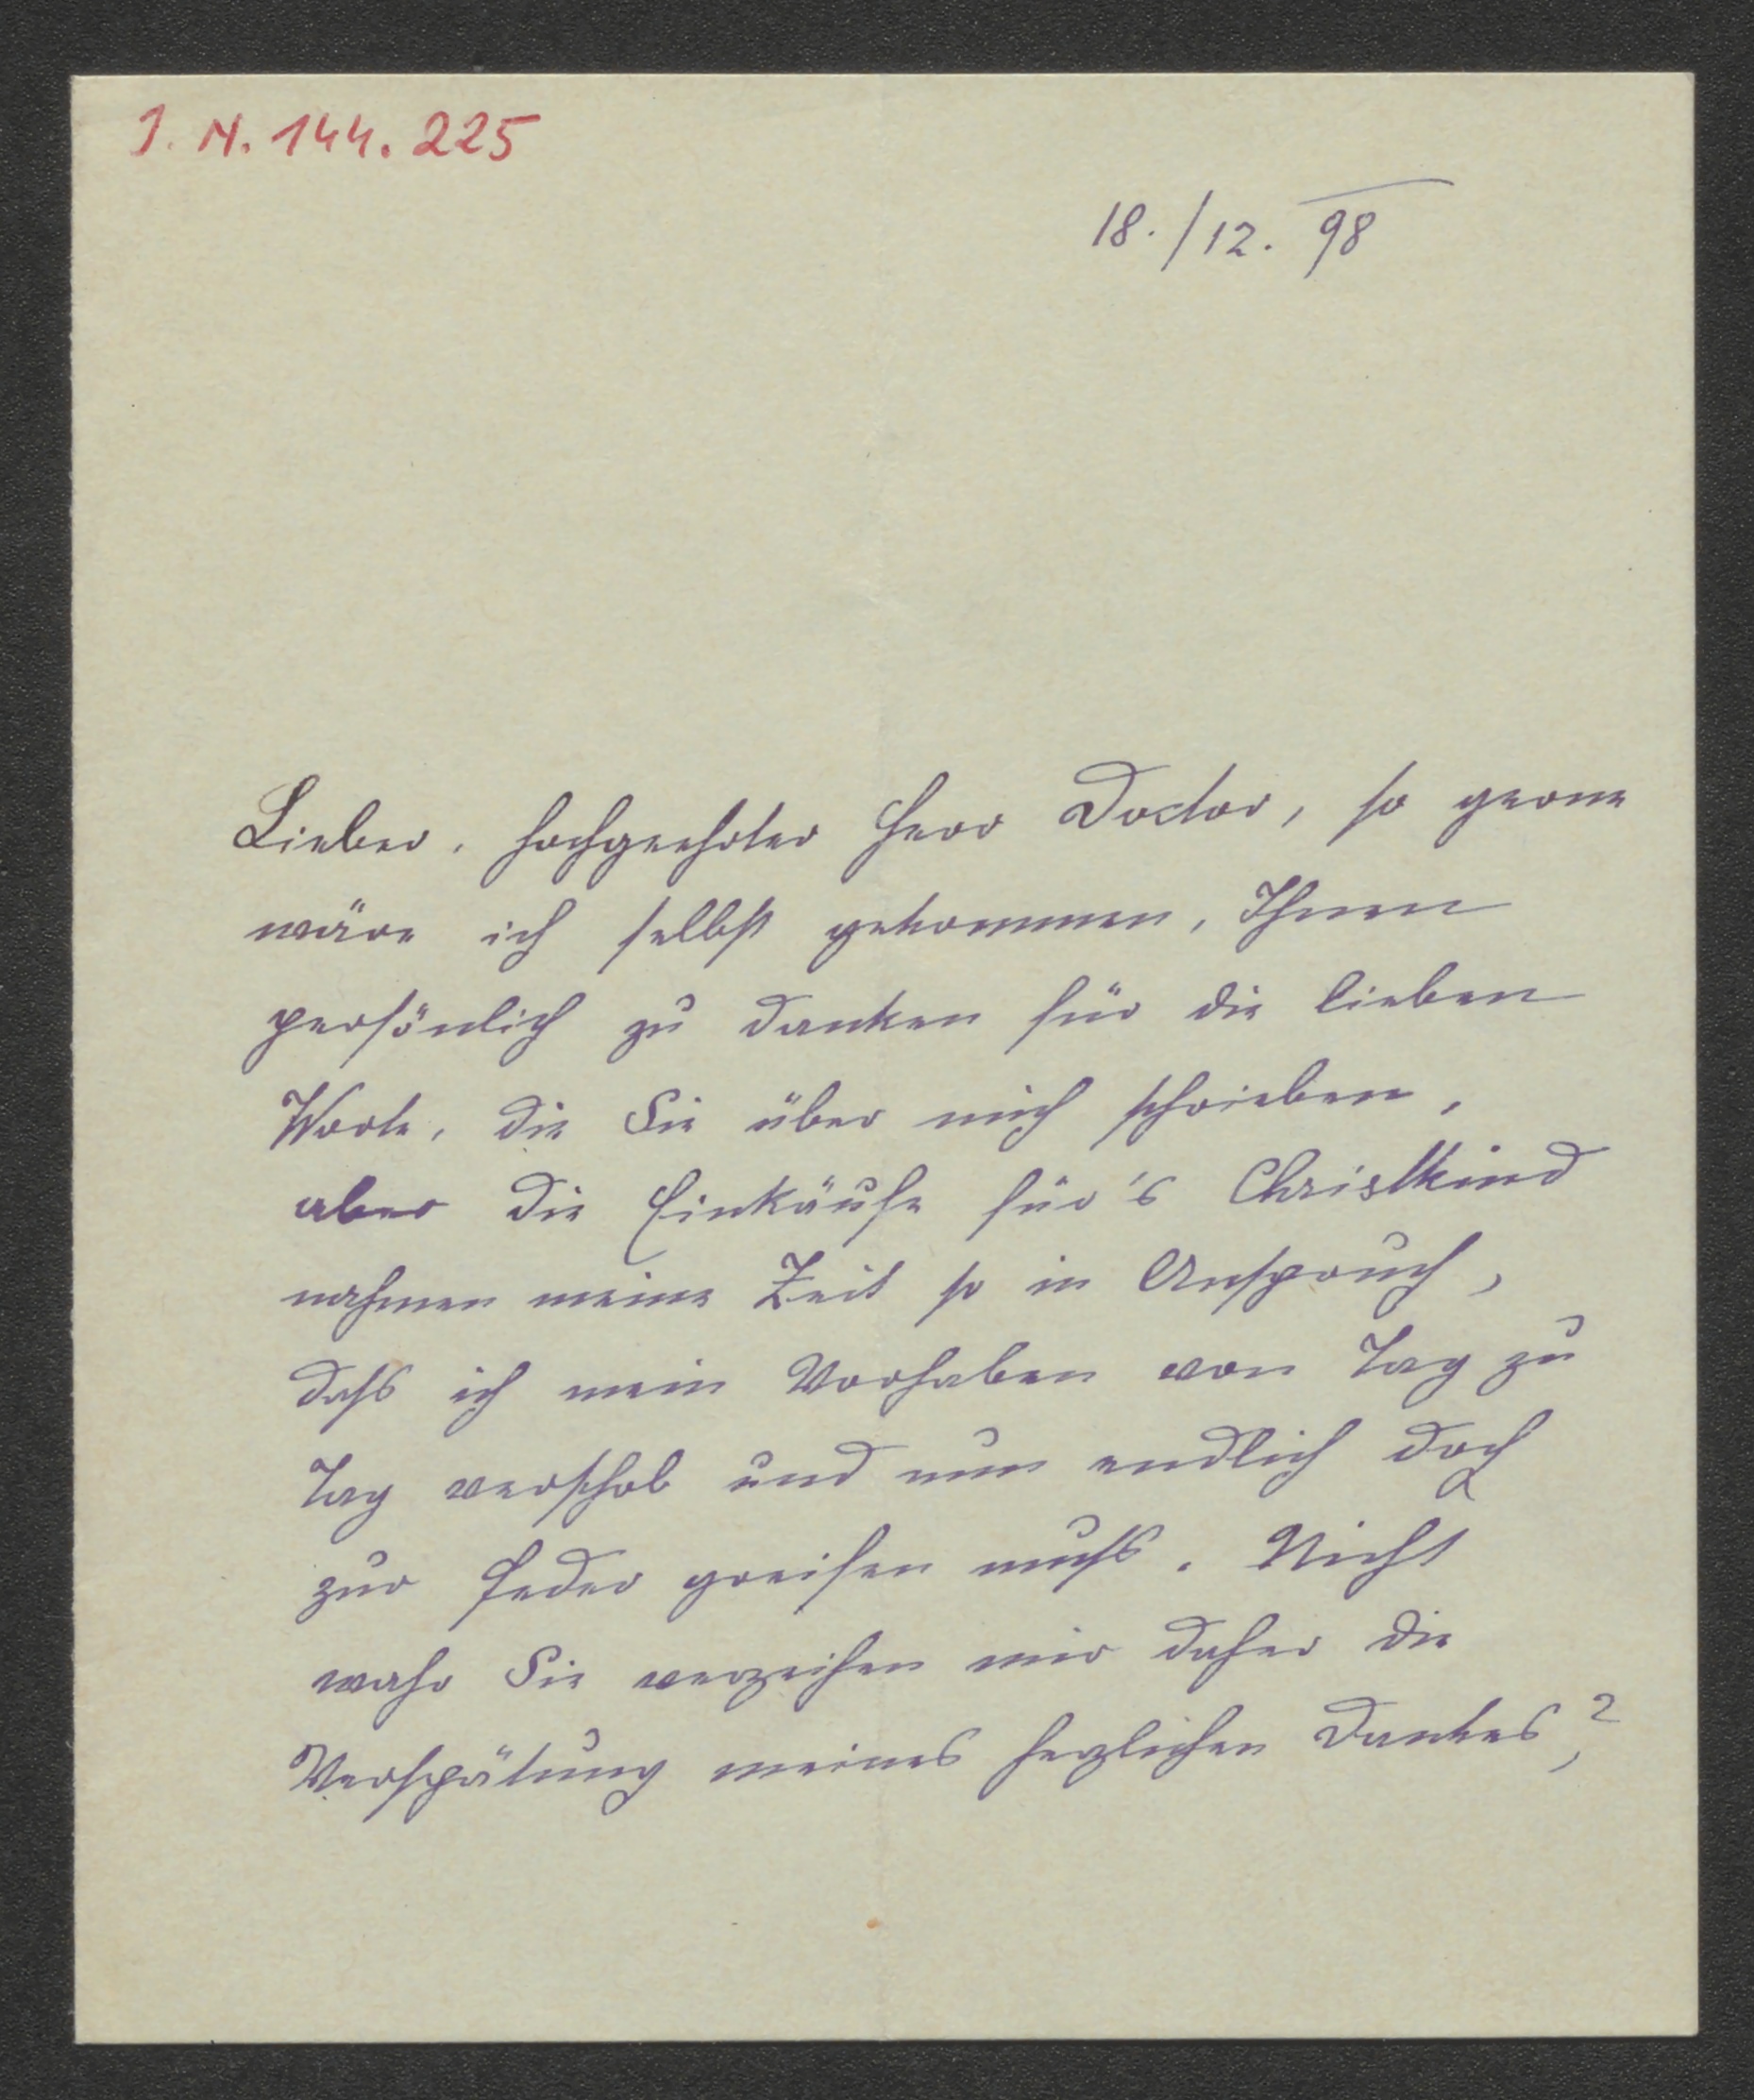 J. N. 144.225
18./12. 98
Lieber, hochgeehrter Herr Doctor, so gerne
wäre ich selbst gekommen, Ihnen
persönlich zu danken für die lieben
Worte, die Sie über mich schrieben,
aber die Einkäufe für's Christkind
nahmen meine Zeit so in Anspruch,
dass ich mein Vorhaben von Tag zu
Tag verschob und nun endlich doch
zur Feder greifen muss. Nicht
wahr Sie verzeihen mir daher die
Verspätung meines herzlichen Dankes?